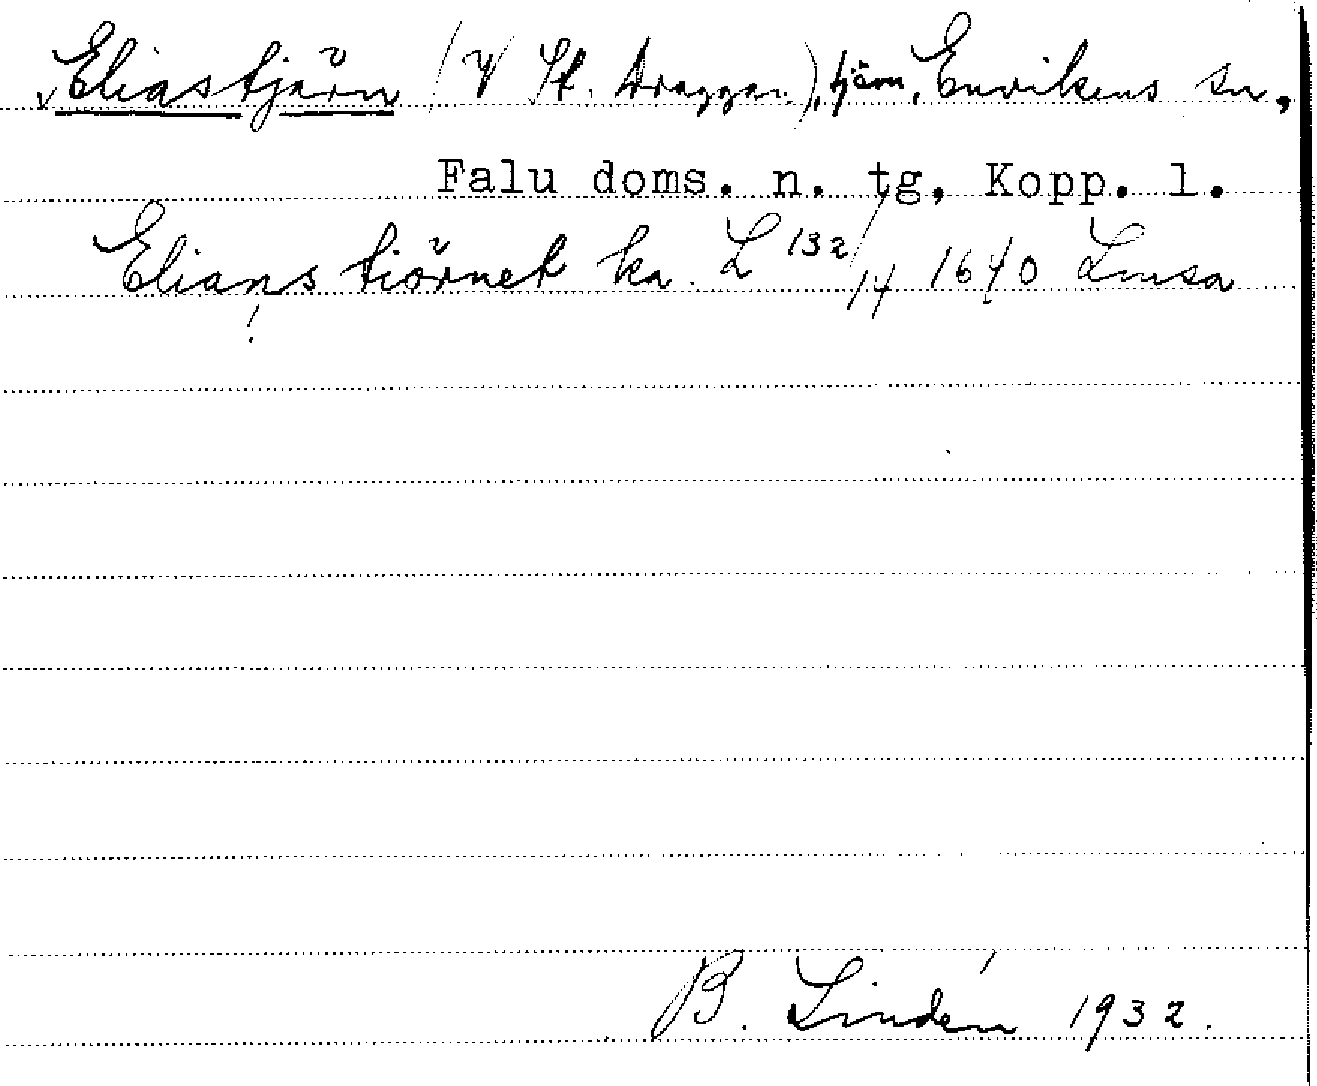 Eliastjärn (V St. Draggen), tjärn, Envikens sn,
Falu doms. n. tg, Kopp. l.
Elians tiörnet ka. L 132/14 1640 Linsa
!
B. Lindén 1932.